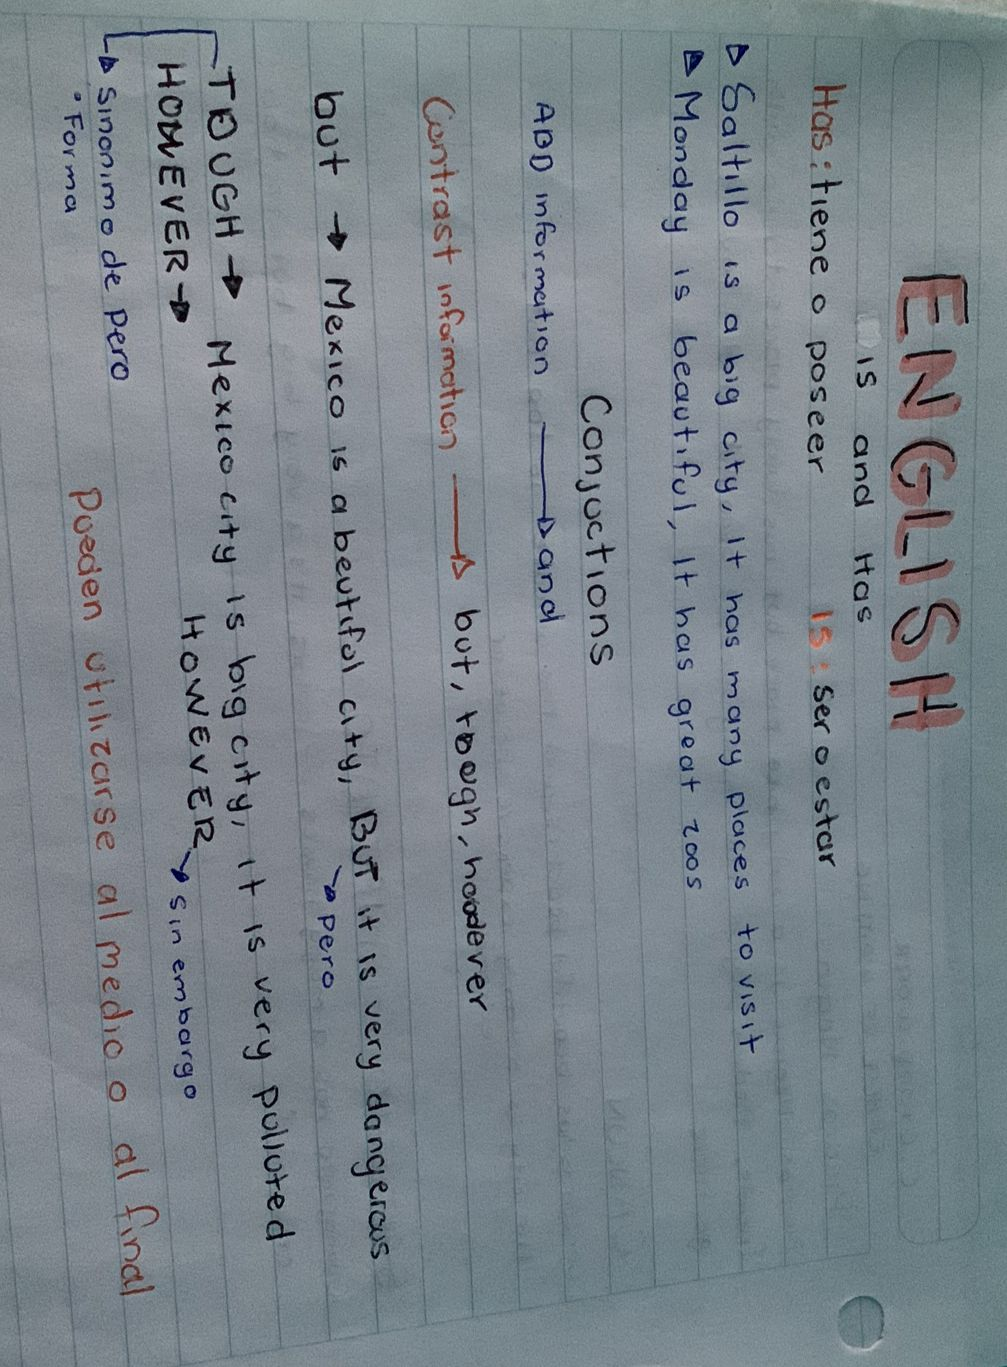 ENGLISH
is and Has
Has: tiene o poseer Is: ser o estar
▷ Saltillo is a big city, It has many places to visit
▷ Monday is beautiful, It has great zoos
Conjuctions
ADD information → and
Contrast information → but, tough, however
but → Mexico is a beutiful city, BUT it is very dangerous
→ pero
TOUGH → Mexico city is big city, it is very polluted
HOWEVER → HOWEVER → sin embargo
→ Sinonimo de pero
• Forma
Pueden utilizarse al medio o al final